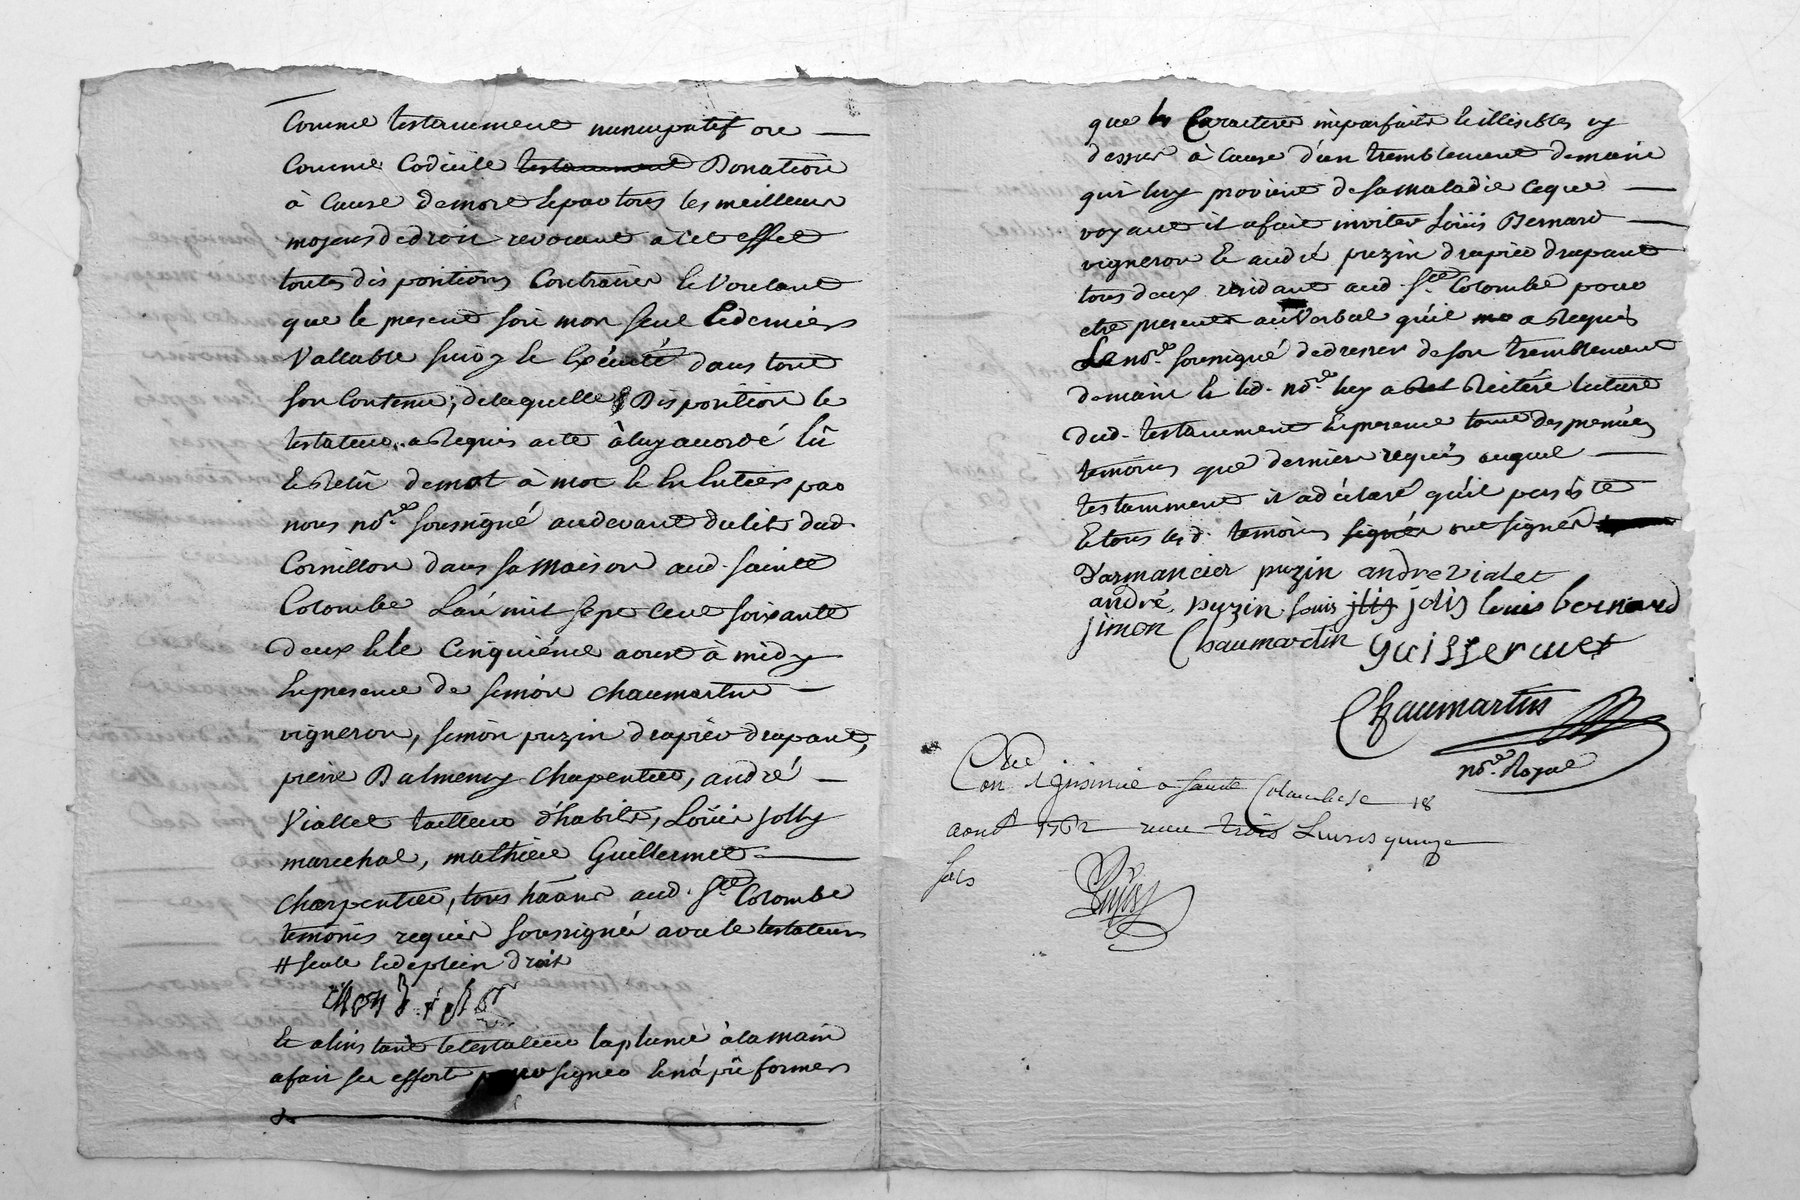 Comme testamment nuncupatif ou
Comme Codicile testamment Donation
à Cause demort Et par tous les meilleurs
moyens dedroit revocant a Cet effet
toutes dis positions Contraires Et Voulant
que le present soit mon seul Et dernier
Vallable suivy Et Exécuté dans tout
son Contenu; delaquelle # Disposition le
testateur a Requis acte à luy accordé lû
Et Relû demot à mot Et En Entier par
nous nore. soussigné audevant dulit dud.
Cornillon dans sa maison aud. sainte
Colombe L'an mil sept Cent soixante
deux Et le Cinquiéme aoust à midy
En presence de simon chaumartin
vigneron, simon puzin drapier drapant,
pierre Balmency Charpentier, andré
Viallet tailleur d'habits, Loüis Jolly
marechal, mathieu Guillermet
Charpentier, tous háans aud. Ste Colombe
temoins requis soussignés avec le testateur
# seule Et de plein droit
Et alins tant le testateur la plume à la main
a fait ses efforts pour signer Et n'a pû former
que les Caracteres imparfaits Et illisibles cy
dessus à Cause d'un tremblement demain
qui luy provient desamaladie Ceque
voyant il a fait inviter Loüis Bernard
vigneron Et andré puzin drapier drapant
tous deux residant aud. Ste Colombe pour
etre present au Verbal qu'il me a Requis
Le nore. soussigné dedresser deson tremblement
demain Et led. nore. luy a Reitéré lecture
dud. testamment En presence tant des premiers
temoins que derniers requis auquel
testamment il a déclaré qu'il persiste
Et tous les d. temoins signés ont signés
Darmancier puzin andre vialet
andré puzin louis jolis jolis louis bernard
simon Chaumartin guillermet
Chaumartin
nore. Royal
Con lé Insinué a Sainte Colombe le 18
aoust 1762 reçu trois Livres quinze
sols